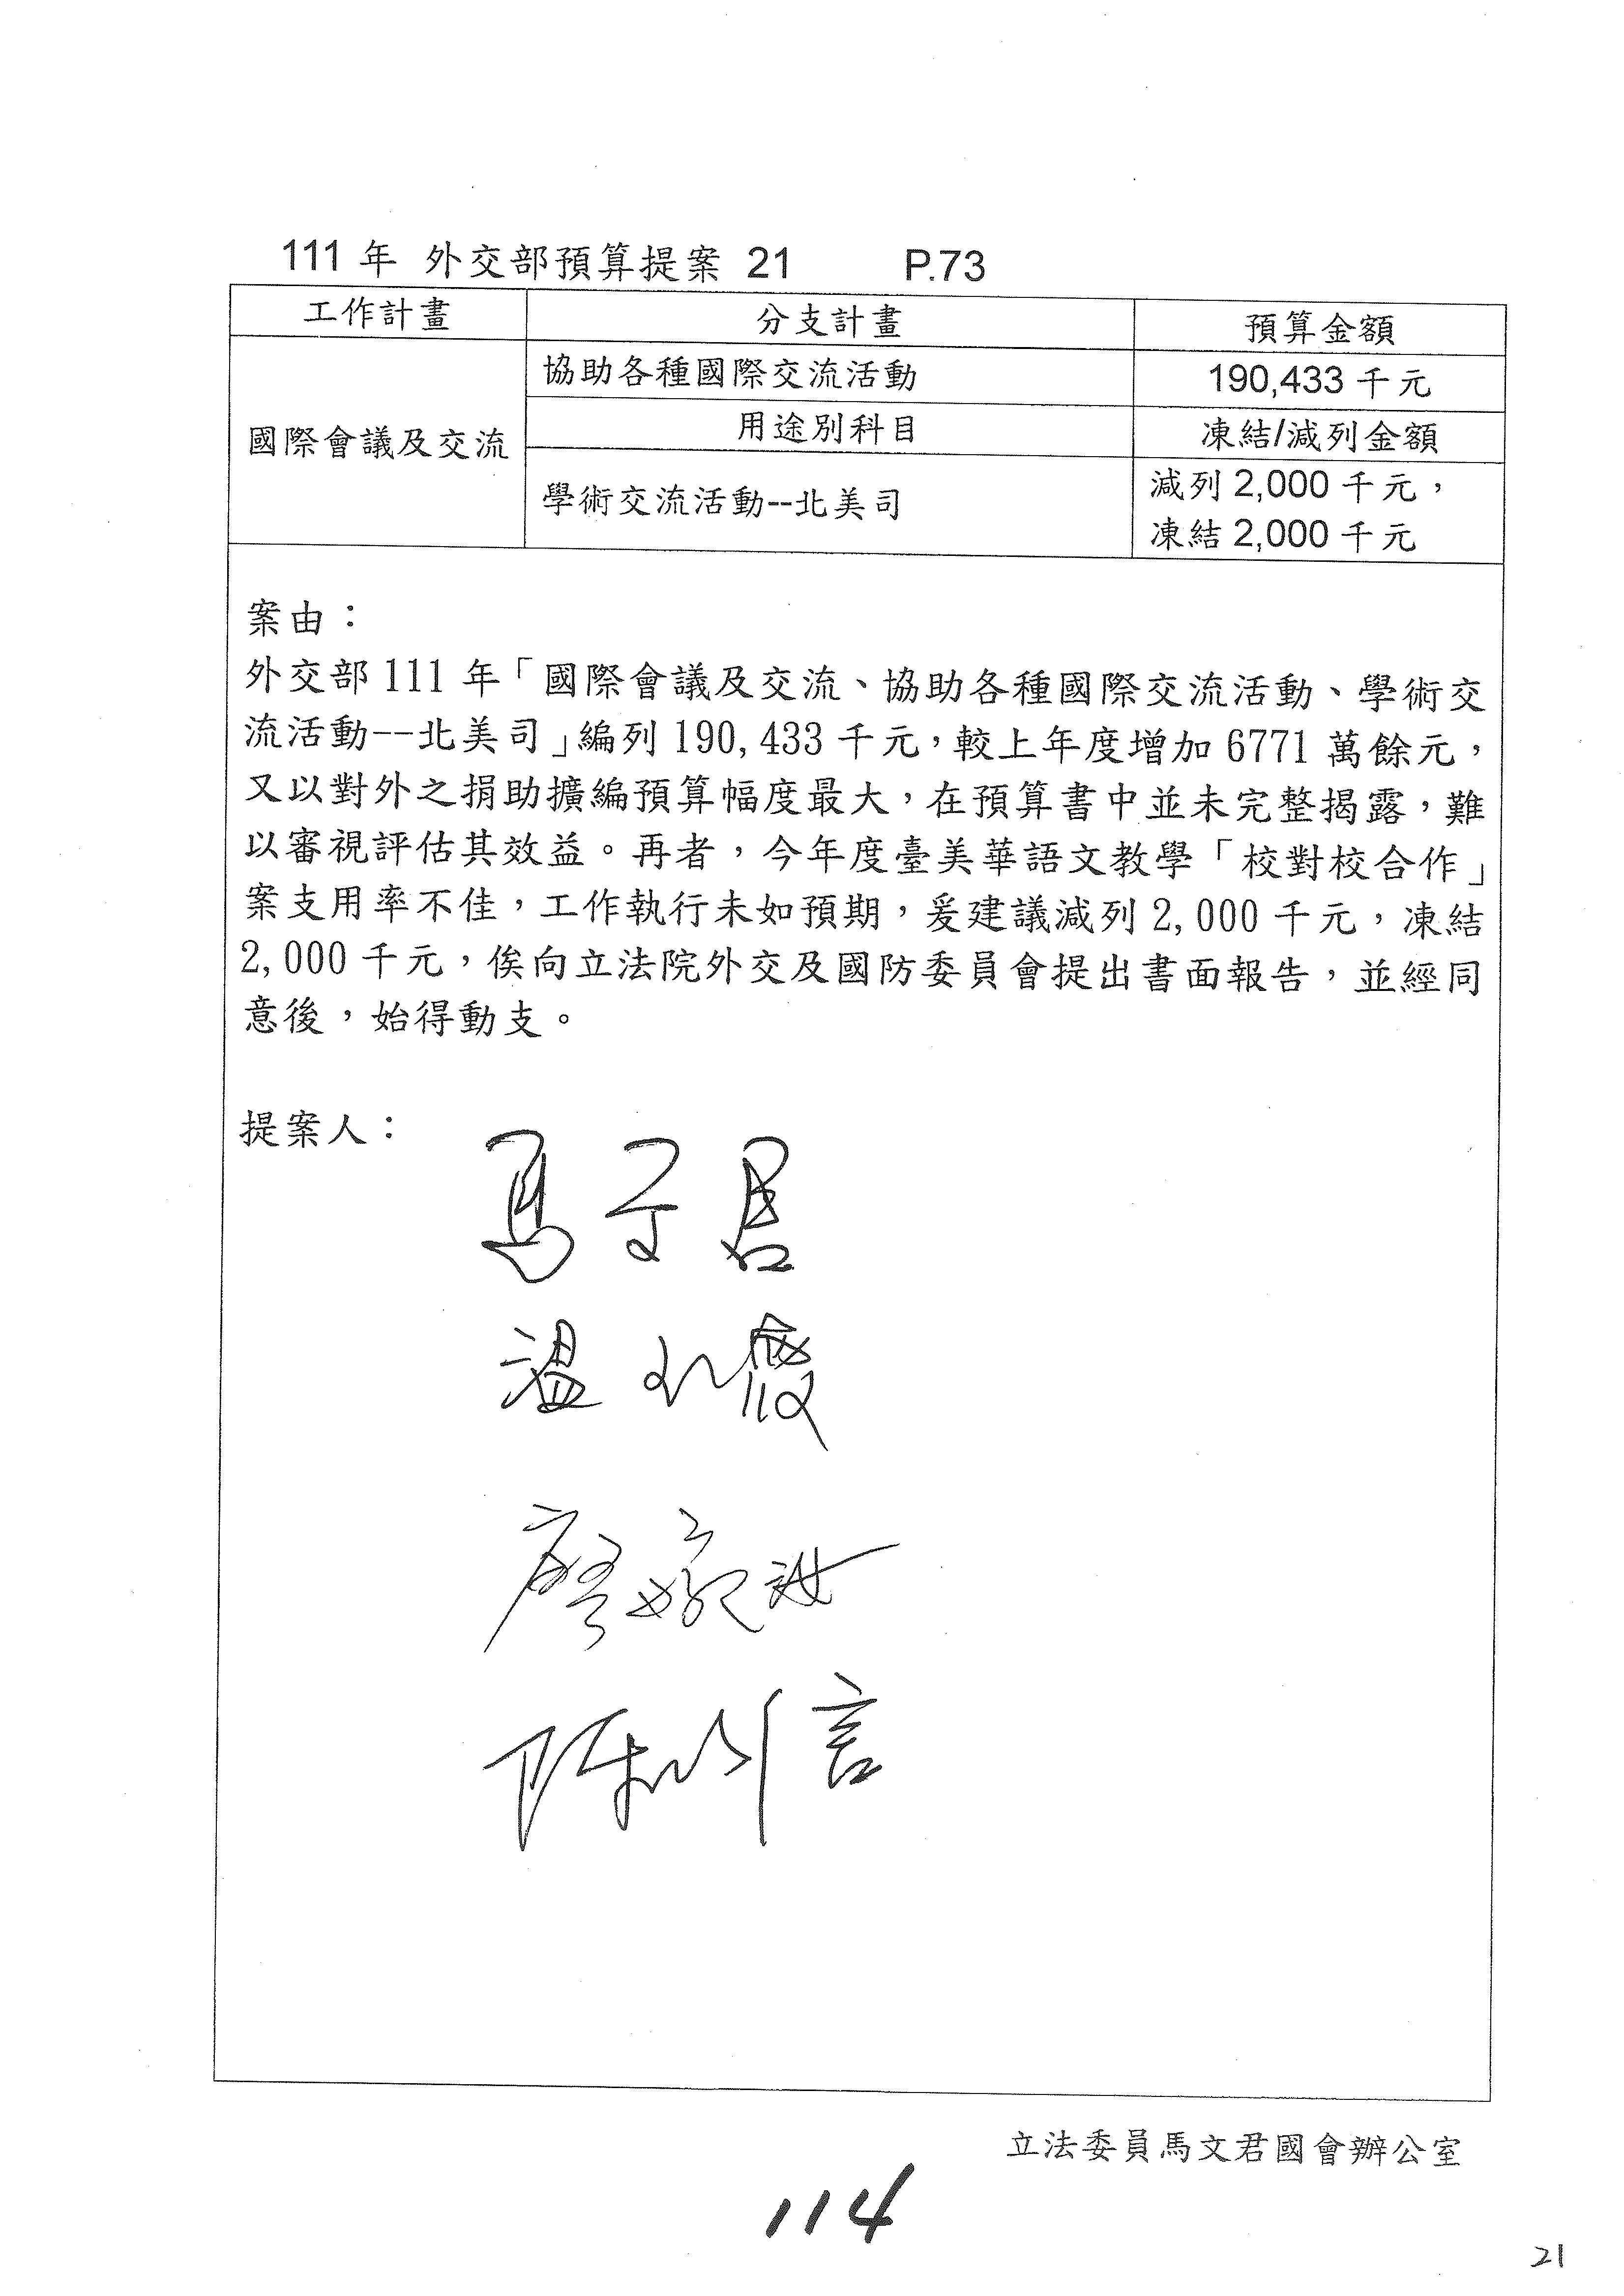 111 年 外交部預算提案 21 P.73
工作計畫 分支計畫 預算金額
協助各種國際交流活動 190,433 千元
用途別科目 凍結/減列金額
國際會議及交流
學術交流活動--北美司 減列 2,000 千元，
凍結 2,000 千元
案由：
外交部 111 年「國際會議及交流、協助各種國際交流活動、學術交
流活動--北美司」編列 190,433 千元，較上年度增加 6771 萬餘元，
又以對外之捐助擴編預算幅度最大，在預算書中並未完整揭露，難
以審視評估其效益。再者，今年度臺美華語文教學「校對校合作」
案支用率不佳，工作執行未如預期，爰建議減列 2,000 千元，凍結
2,000 千元，俟向立法院外交及國防委員會提出書面報告，並經同
意後，始得動支。
提案人：
馬文君
溫玉霞
廖婉汝
陳以信
立法委員馬文君國會辦公室
114
21